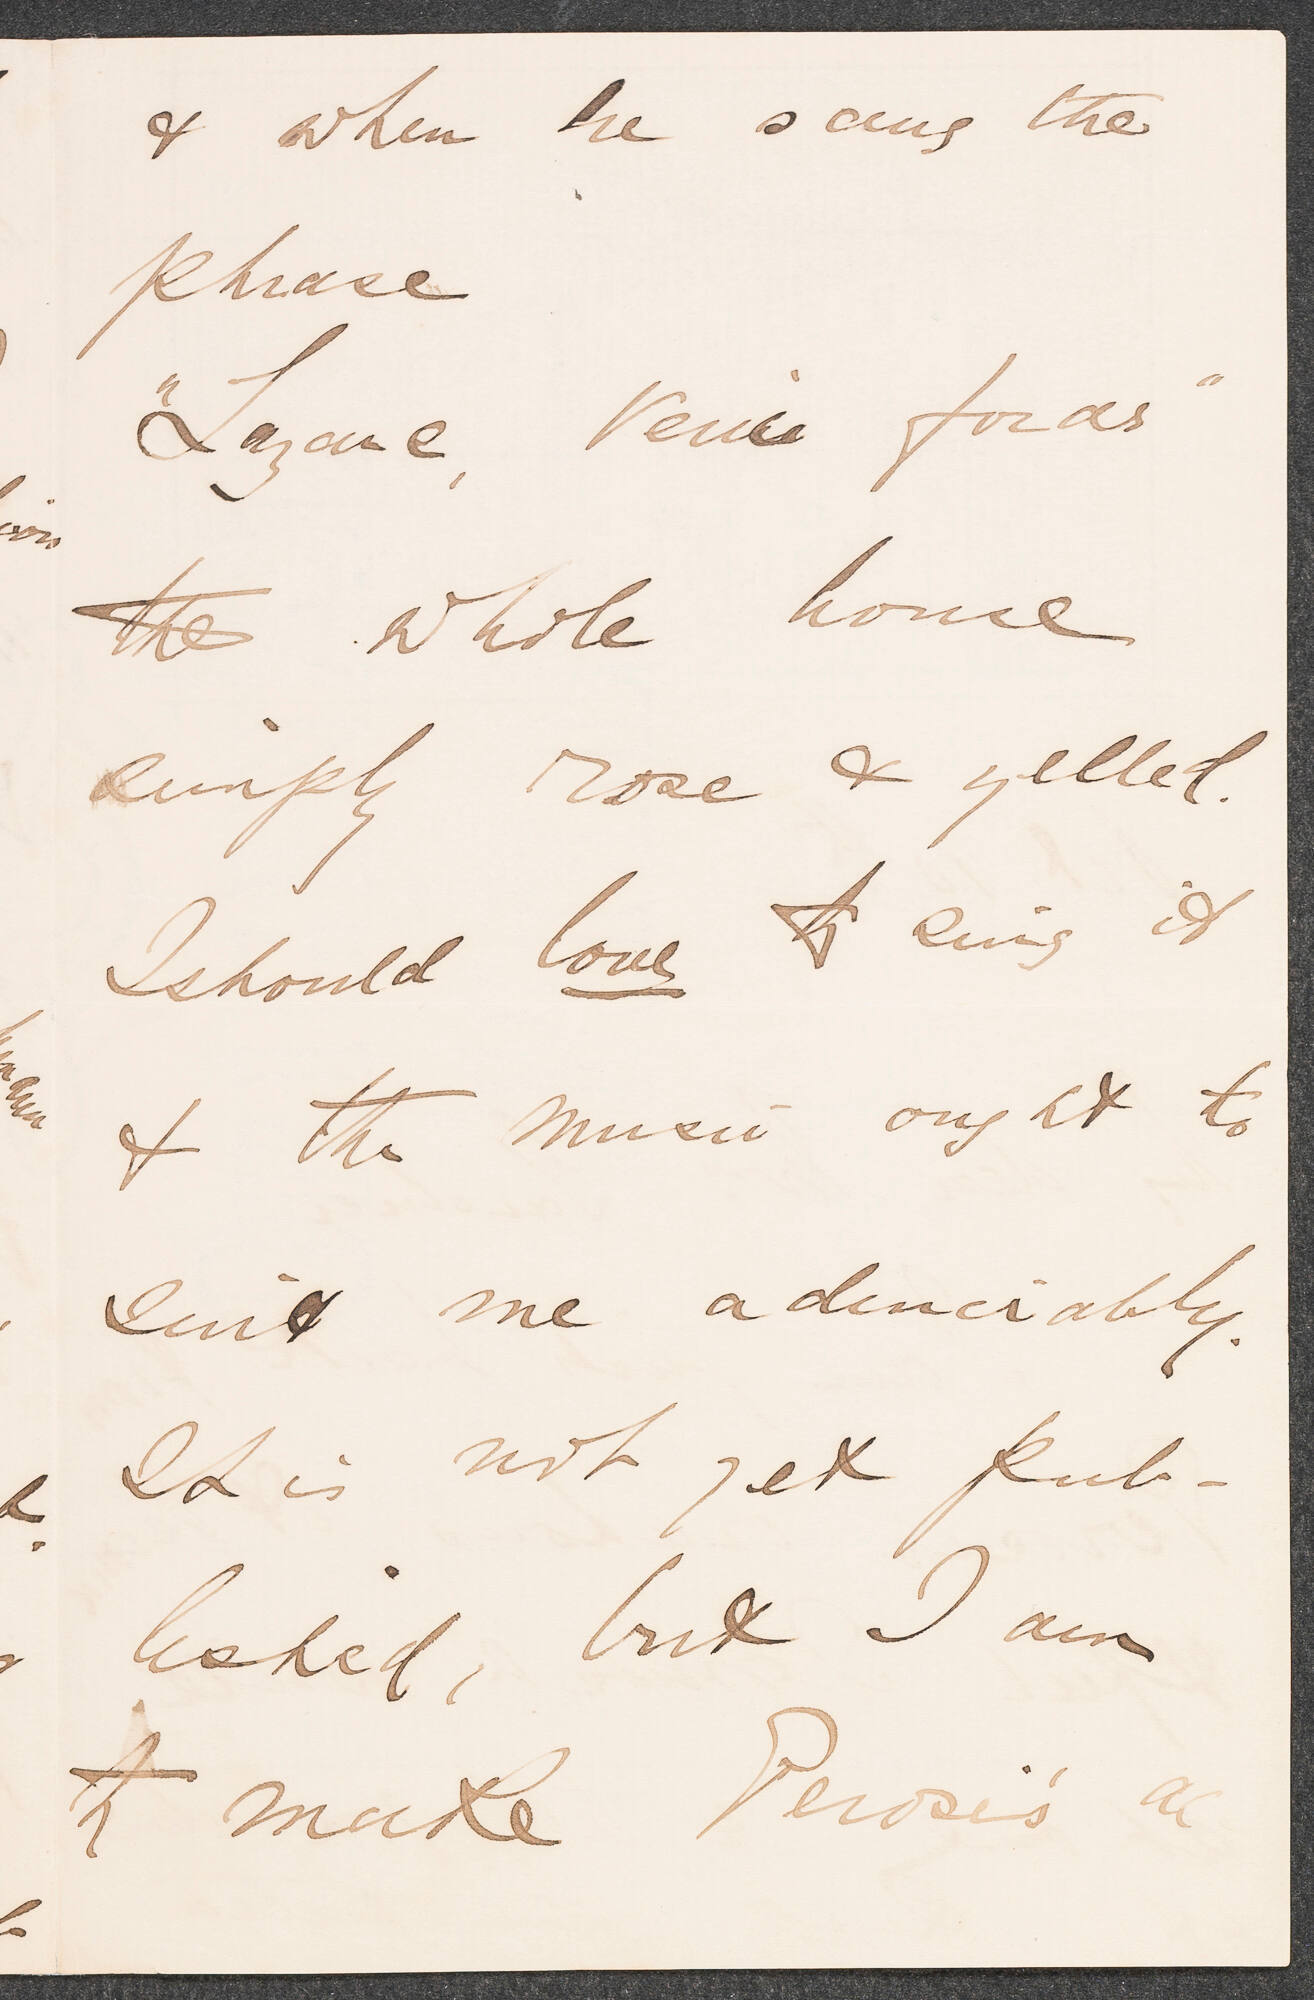 & when he sang the
phrase
"Lazare, veni foras"
the whole house
simply rose & yelled.
I should love to sing it
& the music ought to
suit me admirably.
It is not yet pub-
lished, but I am
to make Perosi's ac